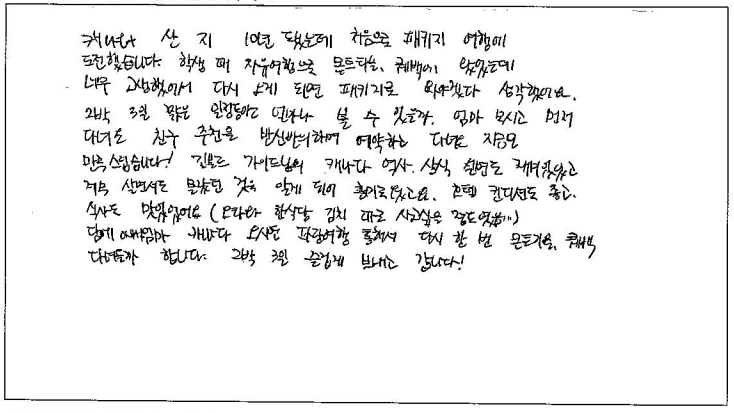 캐나다 산 지 10년 됐는데 처음으로 패키지 여행에
도전했습니다. 학생 때 자유여행으로 몬트리올, 퀘백에 왔었는데
너무 고생했어서 다시 오게 되면 패키지로 와야겠다 생각했어요.
2박 3일 짧은 일정동안 얼마나 볼 수 있을까, 엄마 모시고 먼저
다녀온 친구 추천을 반신반의하며 예약하고 다녀온 지금은
만족스럽습니다! 가이드님의 캐나다 역사, 상식 설명도 재미있었고
계속 살면서도 몰랐던 것을 알게 되어 흥미로웠고요. 호텔 컨디션도 좋고,
식사도 맛있었어요 (오타와 한식당 김치 따로 사고싶을 정도였음)
담에 엄마 캐나다 오시면 파란여행 통해서 다시 한 번 몬트리올, 퀘백
다녀올까 합니다. 2박 3일 즐겁게 보내고 갑니다!